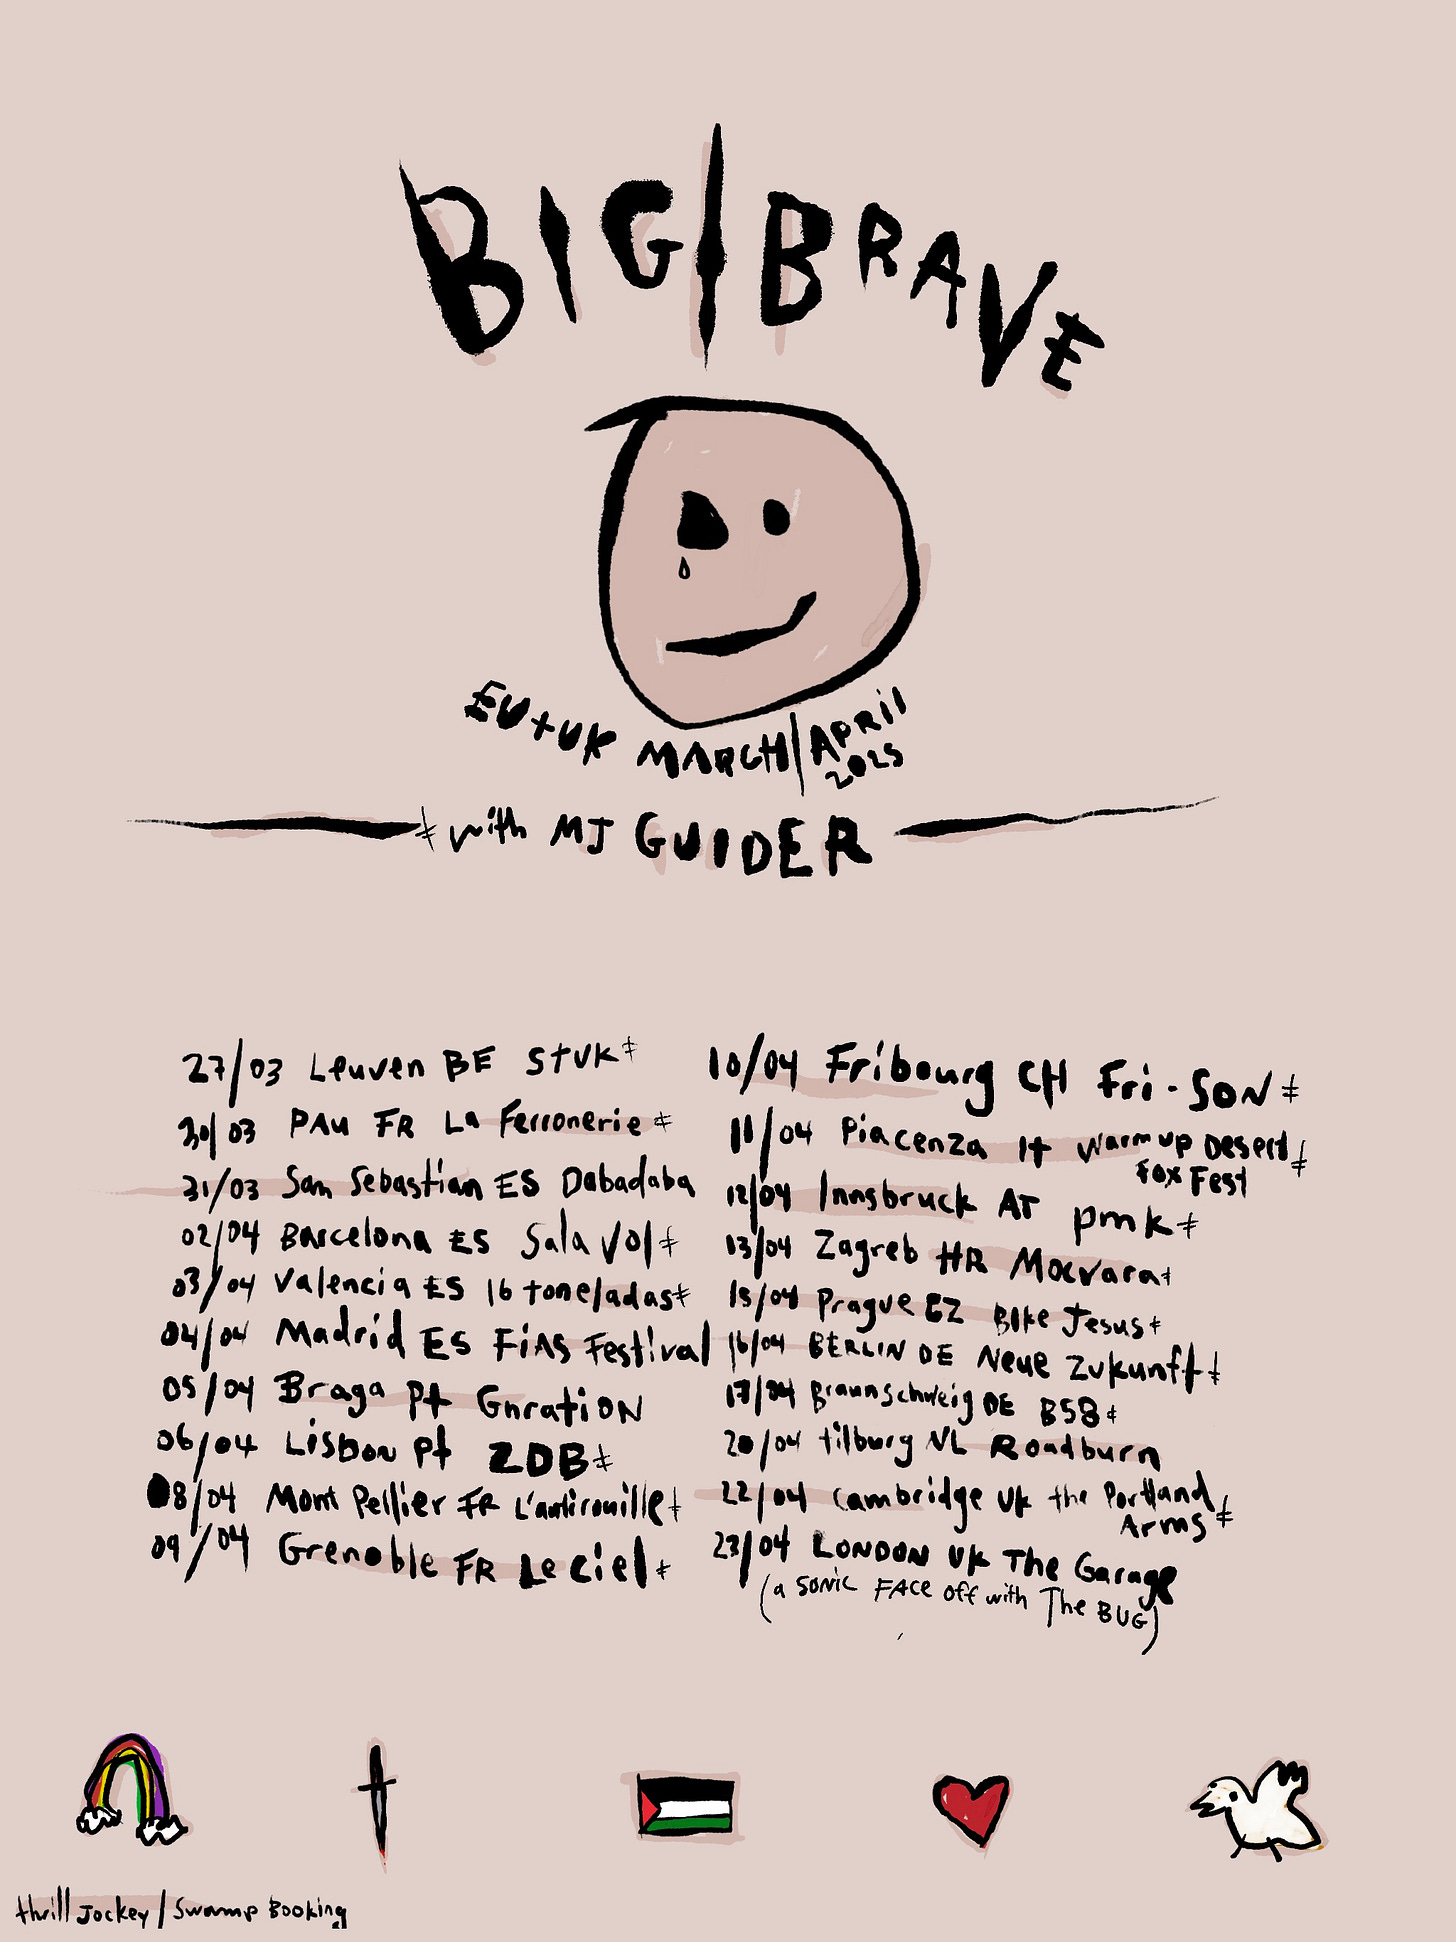 BIG|BRAVE
EU+UK MARCH/APRIL
2025
ǂ with MJ GUIDER
27/03 Leuven BE STUK ǂ
30/03 PAU FR La Ferronerie ǂ
31/03 San Sebastian ES Dabadaba
02/04 Barcelona ES Sala Vol ǂ
03/04 Valencia ES 16 toneladas ǂ
04/04 Madrid ES FiAS Festival
05/04 Braga Pt GnratiON
06/04 LiSbon Pt ZDB ǂ
08/04 Mont Pellier FR L'antirouille ǂ
09/04 Grenoble FR Le Ciel ǂ
10/04 Fribourg CH Fri-SON ǂ
11/04 Piacenza It Warm up Desert
Fox Fest ǂ
12/04 Innsbruck AT pmk ǂ
13/04 Zagreb HR Mocvara ǂ
15/04 Prague CZ BIke Jesus ǂ
16/04 BERLIN DE Neue Zukunft ǂ
17/04 Braunschweig DE B58 ǂ
20/04 tilburg NL Roadburn
22/04 Cambridge UK the Portland
Arms ǂ
23/04 LONDON UK The Garage
(a SONIC FACE off with The BUG)
thrill Jockey / Swamp Booking